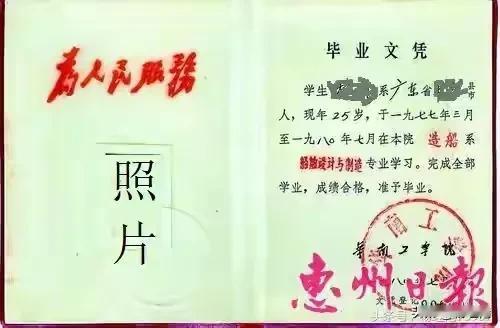 为人民服務
照片
毕业文凭
学生 系广东省 县市
人，现年25岁，于一九七七年三月
至一九八〇年七月在本院 造船 系
船舶设计与制造 专业学习。完成全部
学业，成绩合格，准予毕业。
华南工学院
惠州日报